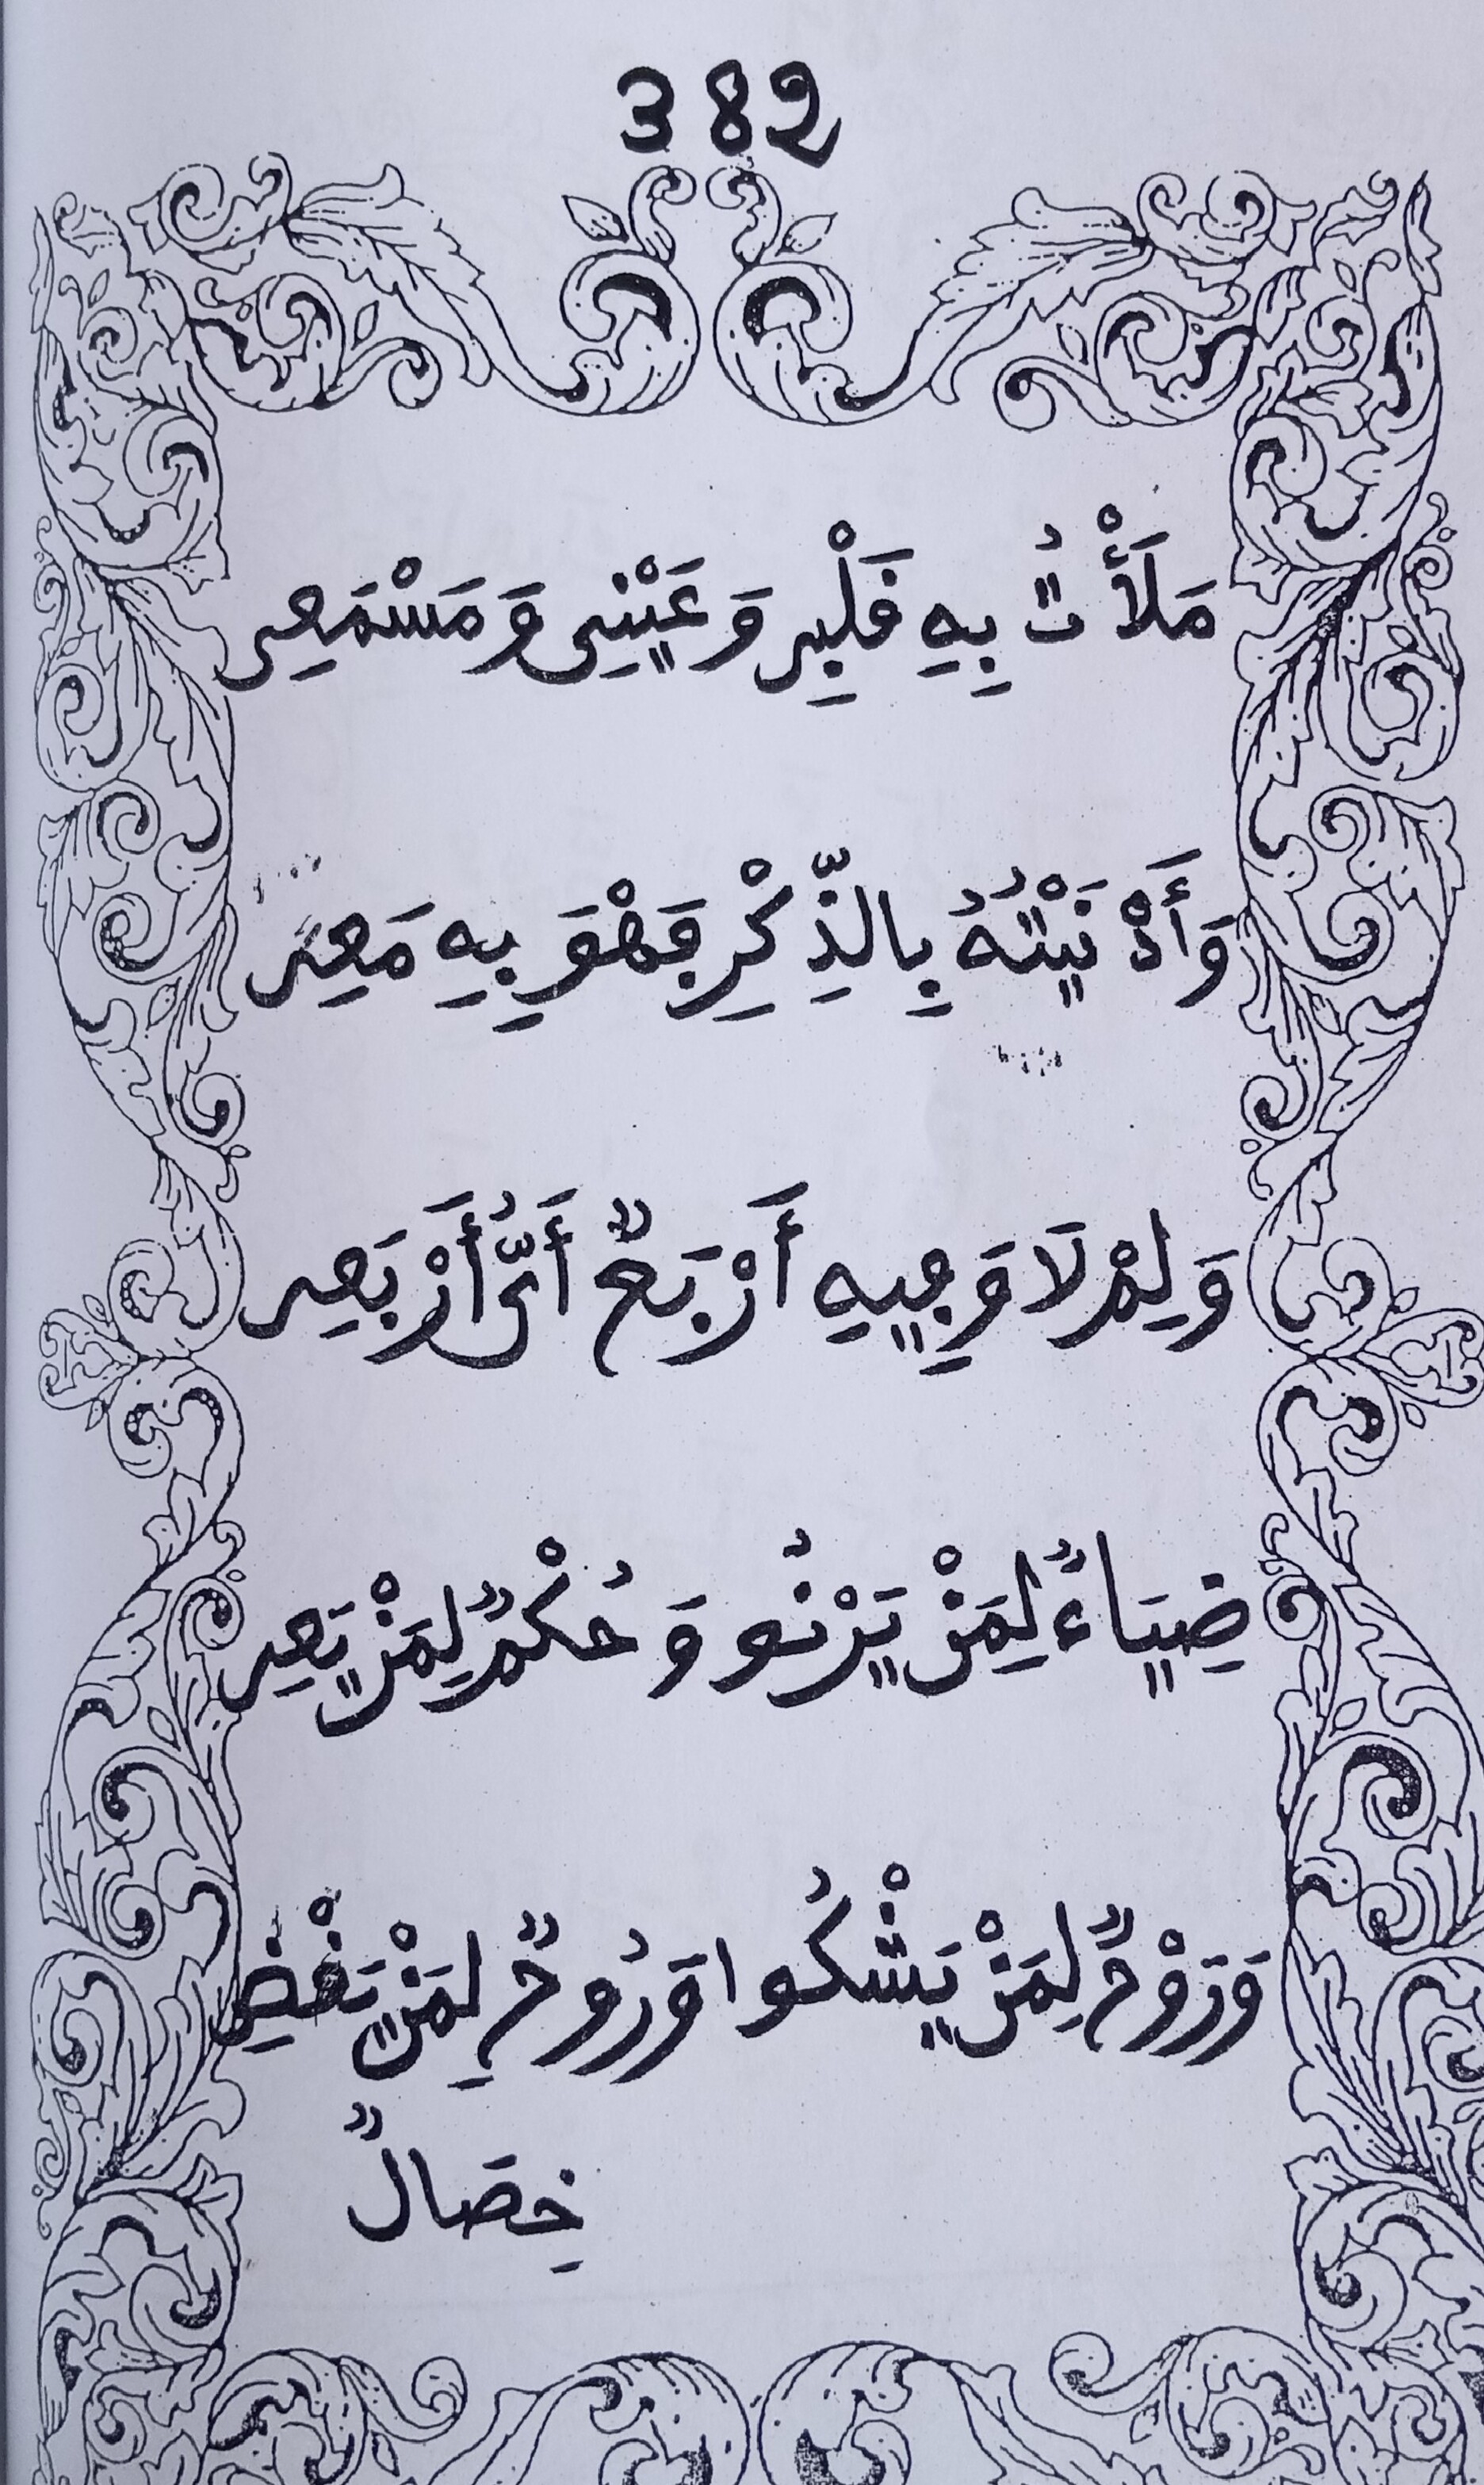 382
مَلَأْتُ بِهِ فَلْبِے وَعَيْنِی وَمَسْمَعِے
وَأَدْنَيْتُهُ بِالذِّكْرِ ڢَهْوَ بِهِ مَعِے
وَلِمْ لَا وَڢِيهِ أَرْبَعٌ أَيُّ أَرْبَعِے
ضِيَاءٌ لِمَنْ يَرْنُو وَحُكْمٌ لِمَنْ يَعِے
وَرَوْحٌ لِمَنْ يَشْكُوا وَرُوحٌ لِمَنْ يَغْضِ
خِصَالٌ